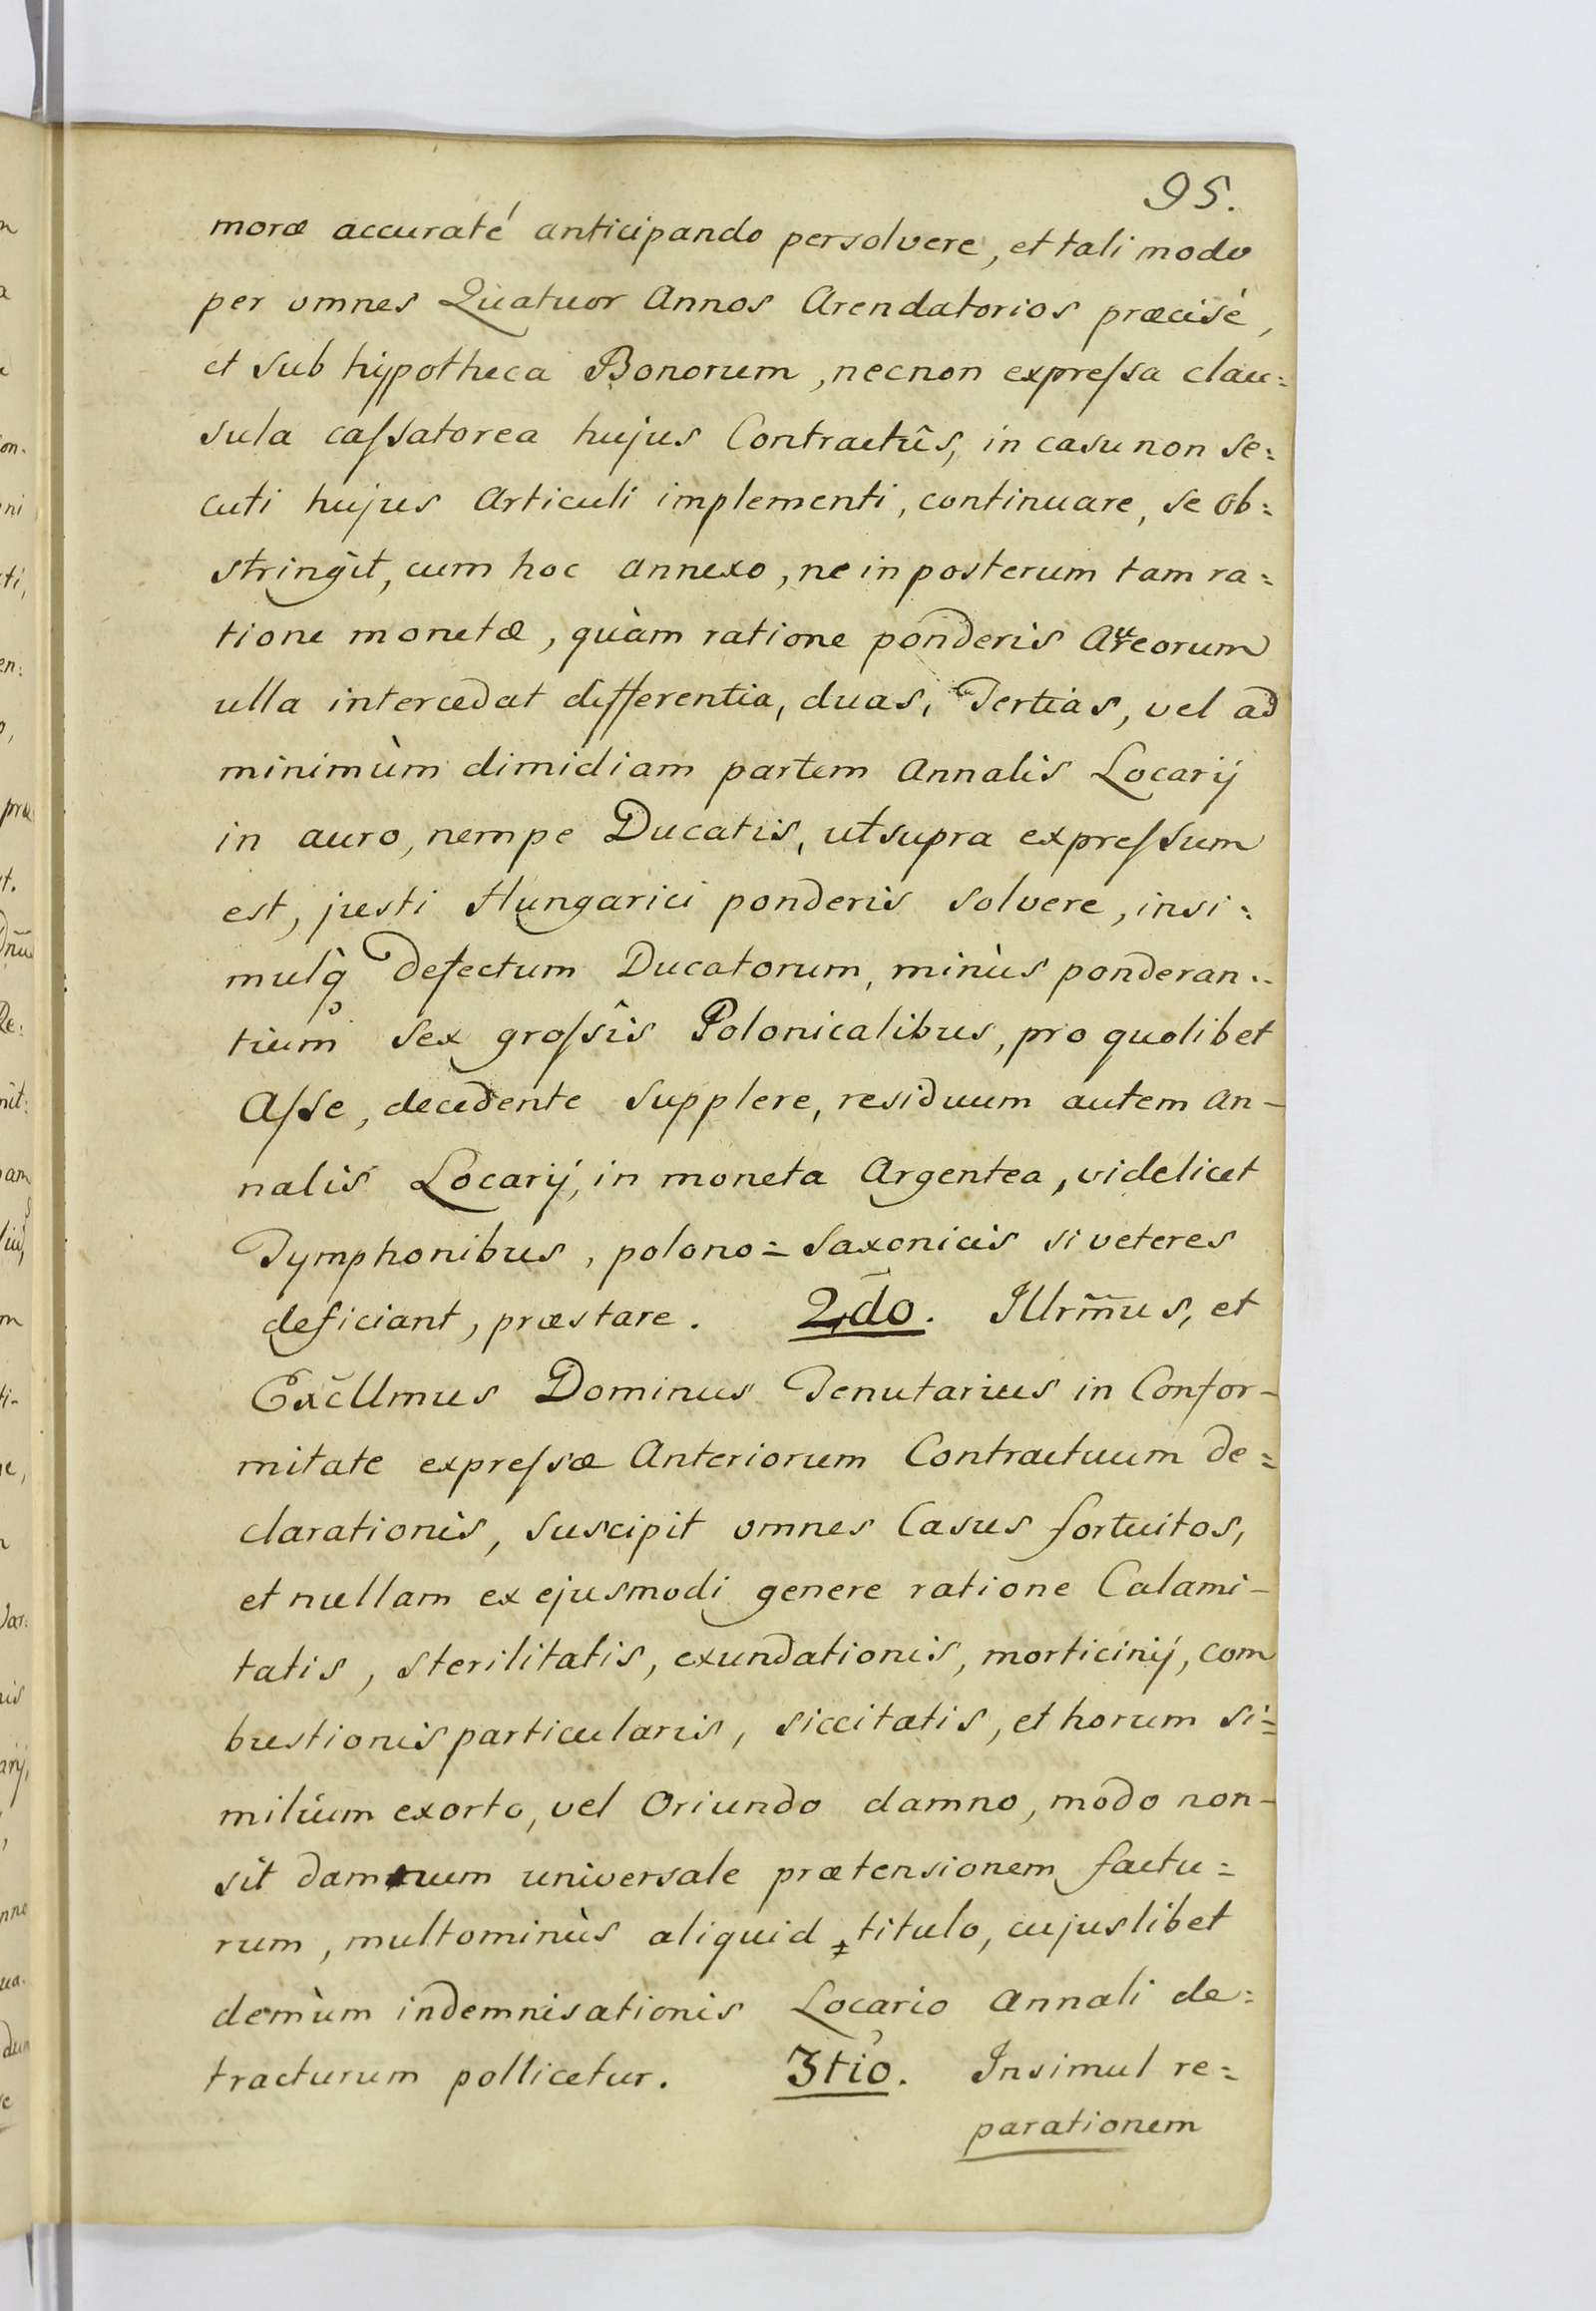 95.
moræ accuraté anticipando persolvere, et tali modo
per omnes Quatuor Annos Arendatorios præcisé,
et sub hÿpotheca Bonorum, necnon expreſsa clau=
sula caſsatorea hujus Contractûs, in casu non se=
cuti hujus Articuli implementi, continuare, se ob=
stringit, cum hoc annexo, ne in posterum tam ra=
tione monetæ, quàm ratione ponderis Aureorum
ulla intercedat differentia, duas, Tertias, vel ad
minimùm dimidiam partem Annalis Locarij
in auro, nempe Ducatis, ut supra expreſsum
est, justi Hungarici ponderis solvere, insi=
mulq̀ defectum Ducatorum, minùs ponderan=
tium sex groſsîs Polonicalibus, pro quolibet
Aſse, decedente supplere, residuum autem An-
nalis Locarij, in moneta Argentea, videlicet
Tymphonibus, polono=saxonicis si veteres
deficiant, præstare. 2do. Illrm̄us, et
Exc̃llmus Dominus Tenutarius in Confor-
mitate expreſsæ Anteriorum Contractuum de=
clarationis, suscipit omnes Casus fortuitos,
et nullam ex ejusmodi genere ratione Calami-
tatis, sterilitatis, exundationis, morticinij, com
bustionis particularis, siccitatis, et horum si=
milium exorto, vel Oriundo damno, modo non-
sit damnum universale prætensionem factu=
rum, multominùs aliquid titulo, cujuslibet
demùm indemnisationis Locario Annali de=
tracturum pollicetur. 3tio. Insimul re=
parationem